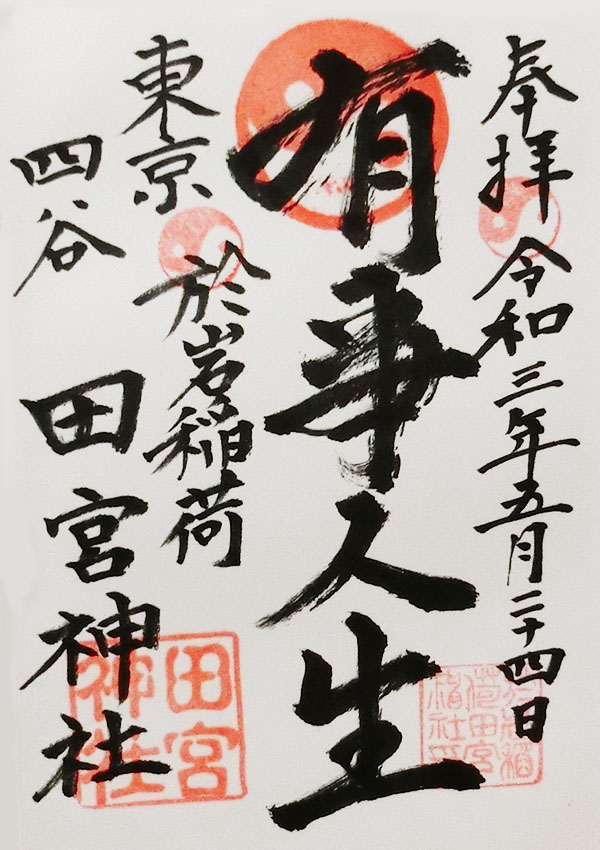 奉拝 令和三年五月二十四日
有事人生
東京
於岩稲荷
四谷
田宮神社
田宮
神社